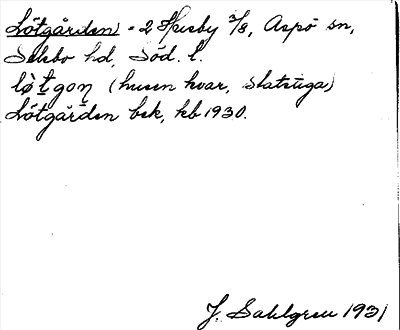 Lötgården = 2 Husby 3/8, Aspö sn,
Selebo hd, Söd. l.
lø̀tgoṇ (husen kvar, statstuga)
Lötgården bek, kb 1930.
J. Sahlgren 1931